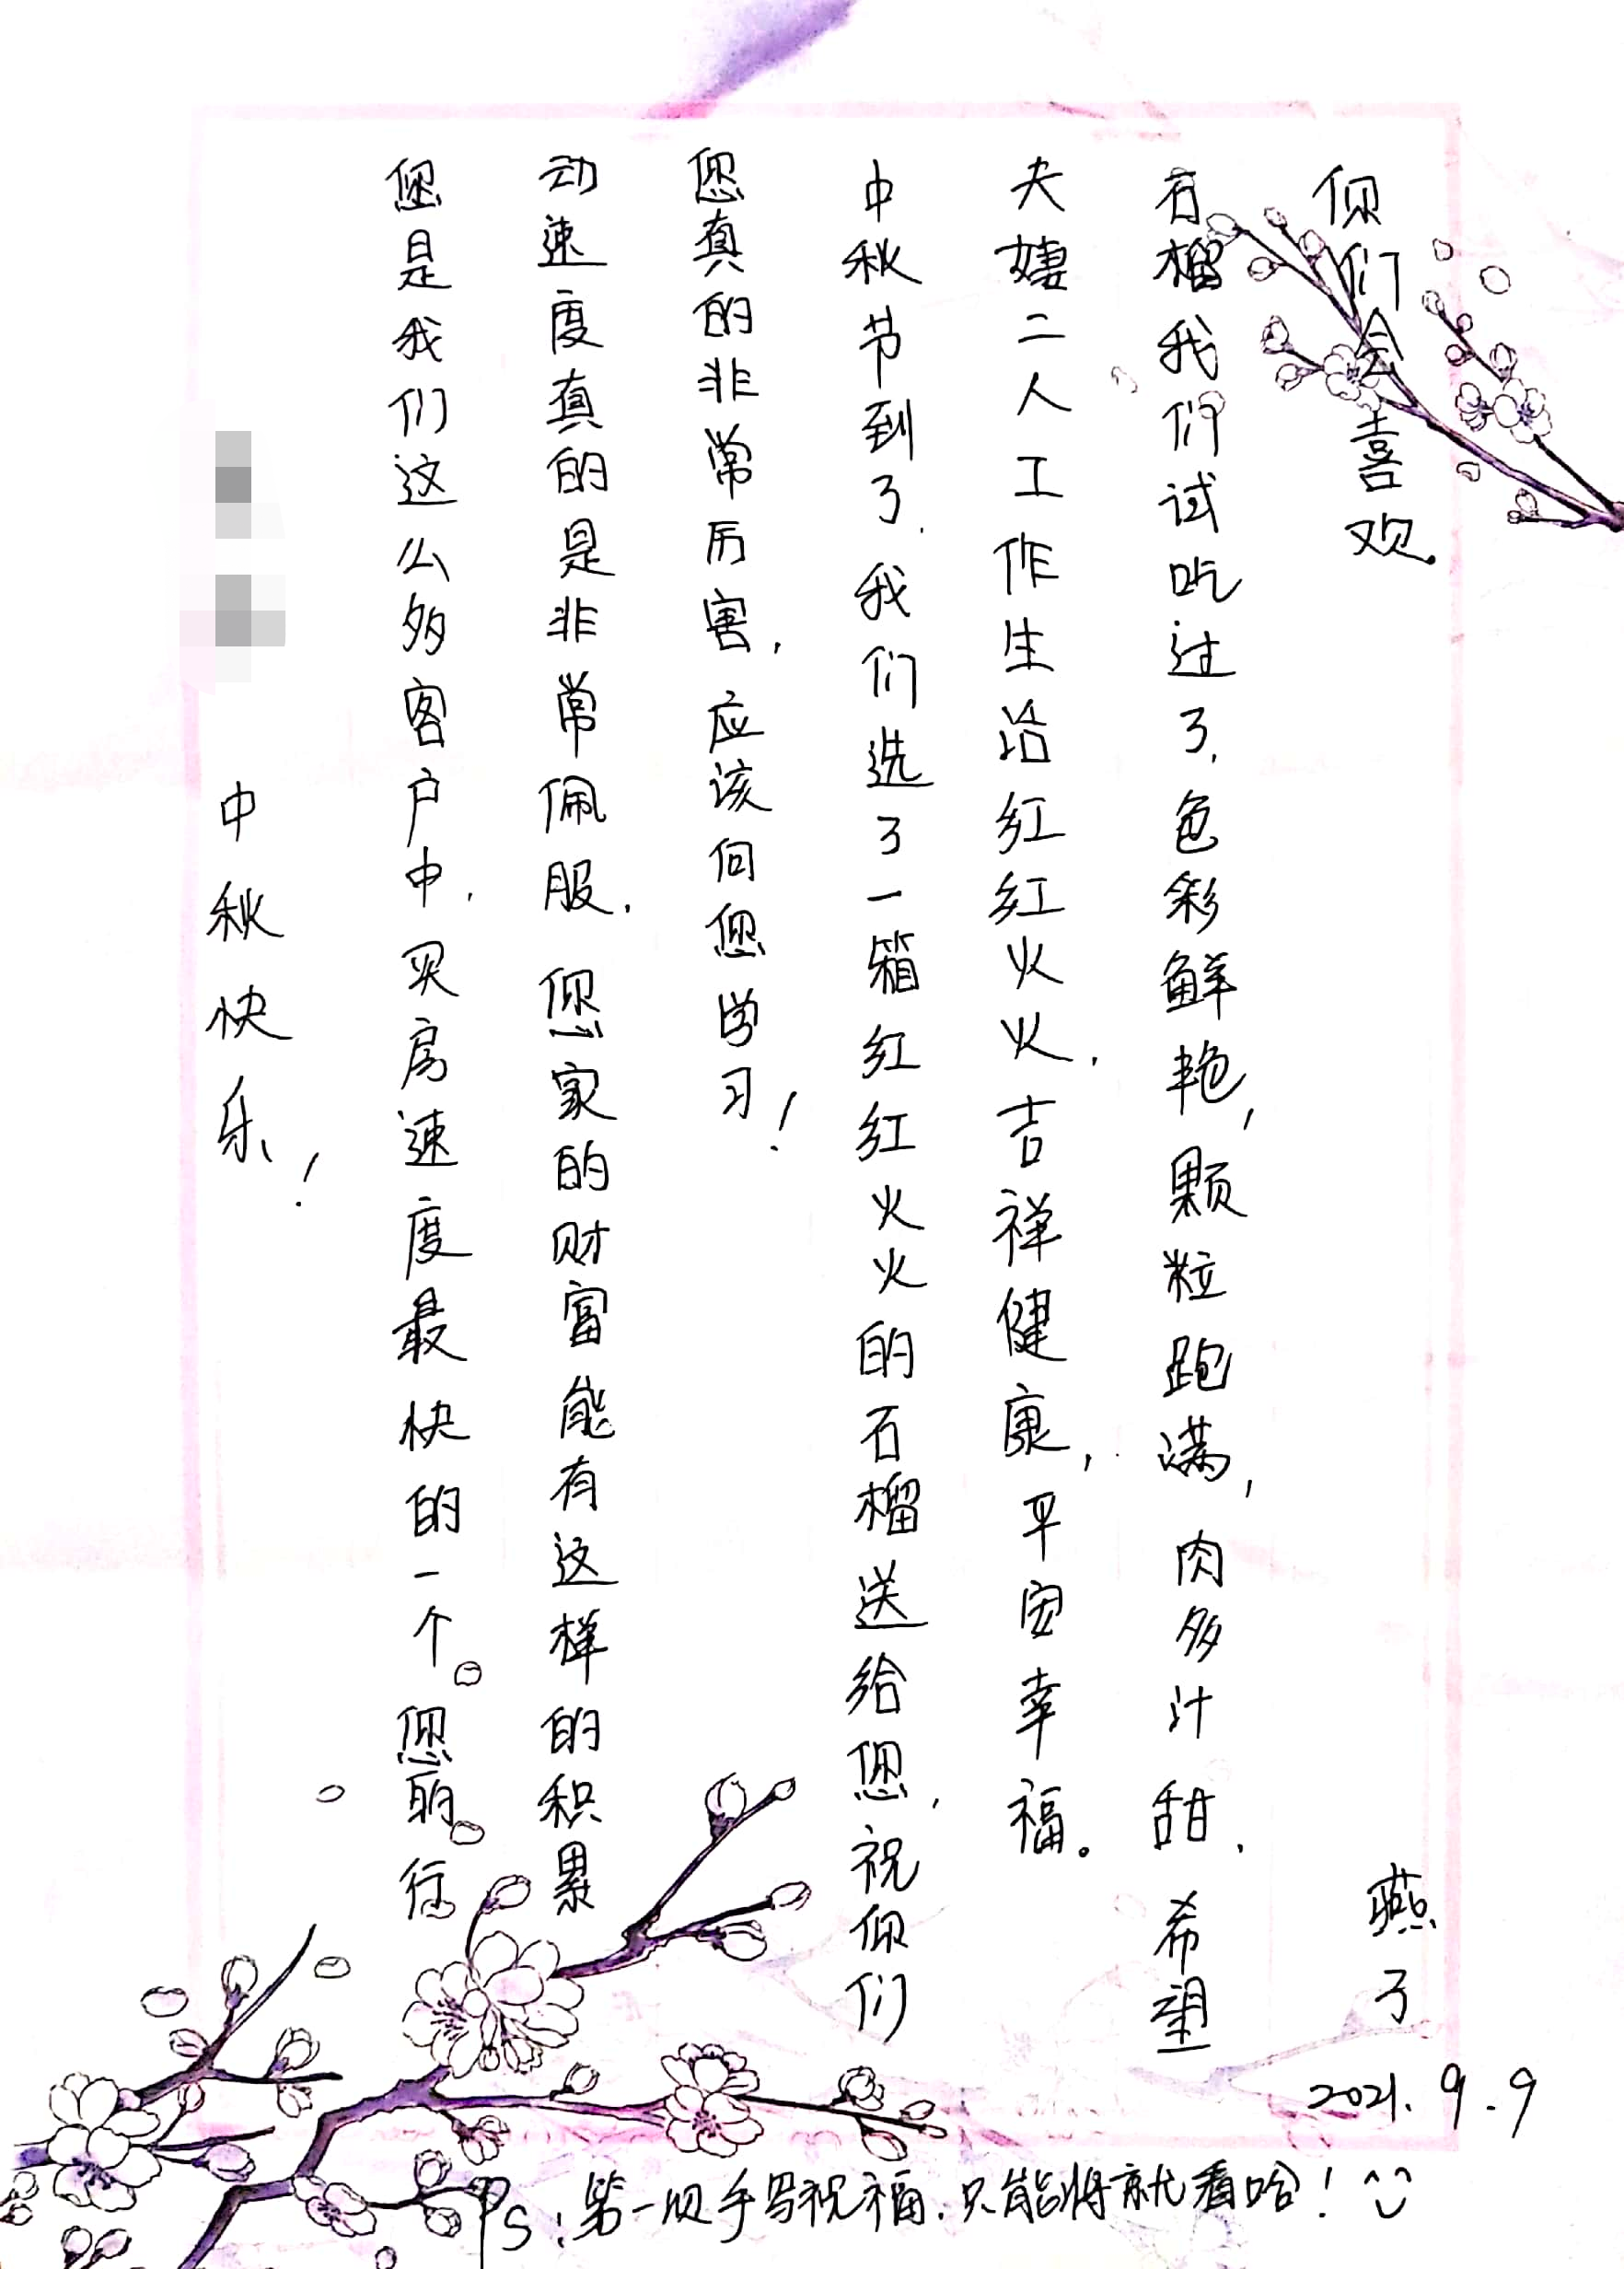 中秋快乐！
您是我们这么多客户中，买房速度最快的一个。您的行
动速度真的是非常佩服，您家的财富能有这样的积累
您真的非常厉害，应该向您学习！
中秋节到了，我们选了一箱红红火火的石榴送给您，祝你们
夫妻二人工作生活红红火火，吉祥健康，平安幸福。
石榴我们试吃过了，色彩鲜艳，颗粒跑满，肉多汁甜，希望
你们会喜欢.
燕子
2021.9.9
PS：第一手写祝福，只能将就看哈！